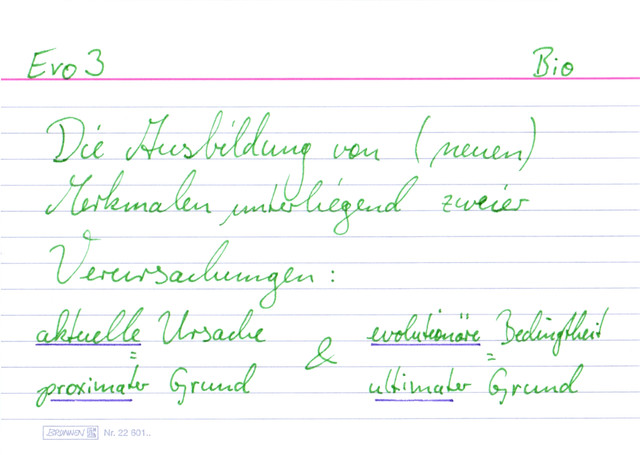 Evo 3 Bio
Die Ausbildung von (neuen)
Merkmalen, unterliegend zweier
Verursachungen:
aktuelle Ursache & evolutionäre Bedingtheit
= =
proximater Grund ultimater Grund
BRUNNEN Nr. 22 601..